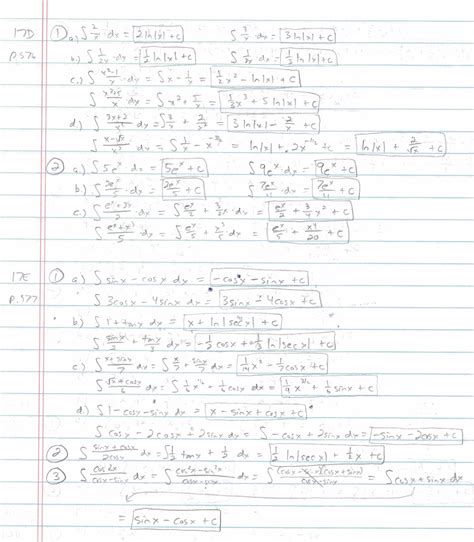 17D ① a.) ∫ 2/x dx = 2ln|x| + c   ∫ 3/x dx = 3ln|x| + c
p.576 b.) ∫ 1/2x dx = 1/2 ln|x| + c   ∫ 1/3x dx = 1/3 ln|x| + c
c.) ∫ x²-1/x dx = ∫ x - 1/x = 1/2 x² - ln|x| + c
∫ x³+5/x dx = ∫ x² + 5/x = 1/3 x³ + 5 ln|x| + c
d.) ∫ 3x+2/x² dx = ∫ 3/x + 2/x² = 3 ln|x| - 2/x + c
∫ x-√x/x² dx = ∫ 1/x - x^-3/2 = ln|x| + 2x^-1/2 + c = ln|x| + 2/√x + c
② a.) ∫ 5e^x dx = 5e^x + c   ∫ 9e^x dx = 9e^x + c
b.) ∫ 2e^x/5 dx = 2e^x/5 + c   ∫ 7e^x/11 dx = 7e^x/11 + c
c.) ∫ e^x+3x/2 dx = ∫ e^x/2 + 3/2 x dx = e^x/2 + 3/4 x² + c
∫ e^x+x³/5 dx = ∫ e^x/5 + x³/5 dx = e^x/5 + x⁴/20 + c
17E ① a.) ∫ sinx - cosx dx = -cosx - sinx + c
p.577 ∫ 3cosx - 4sinx dx = 3sinx + 4cosx + c
b.) ∫ 1 + tanx dx = x + ln|secx| + c
∫ sinx/2 + tanx/3 dx = -1/2 cosx + 1/3 ln|secx| + c
c.) ∫ x+sinx/7 dx = ∫ x/7 + sinx/7 dx = 1/14 x² - 1/7 cosx + c
∫ √x+cosx/6 dx = ∫ 1/6 x^1/2 + 1/6 cosx dx = 1/9 x^3/2 + 1/6 sinx + c
d.) ∫ 1 - cosx - sinx dx = x - sinx + cosx + c
∫ cosx - 2cosx + 2sinx dx = ∫ -cosx + 2sinx dx = -sinx - 2cosx + c
② ∫ sinx+cosx/2cosx dx = ∫ 1/2 tanx + 1/2 dx = 1/2 ln|secx| + 1/2 x + c
③ ∫ cos2x/cosx-sinx dx = ∫ cos²x-sin²x/cosx-sinx dx = ∫ (cosx-sinx)(cosx+sinx)/cosx-sinx = ∫ cosx + sinx dx
= sinx - cosx + c